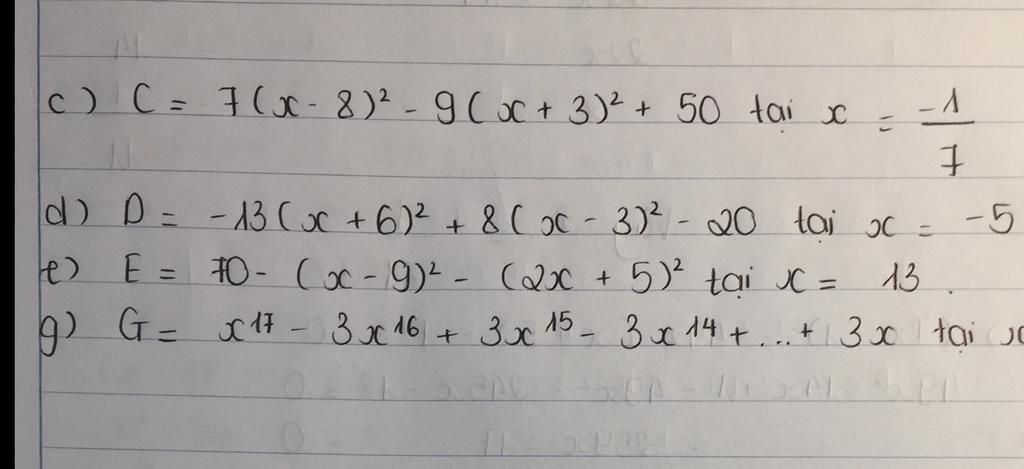 c) C = 7(x - 8)² - 9(x + 3)² + 50 tại x = -1/7
d) D = -13(x + 6)² + 8(x - 3)² - 20 tại x = -5
e) E = 70 - (x - 9)² - (2x + 5)² tại x = 13.
g) G = x¹⁷ - 3x¹⁶ + 3x¹⁵ - 3x¹⁴ + ... + 3x tại x